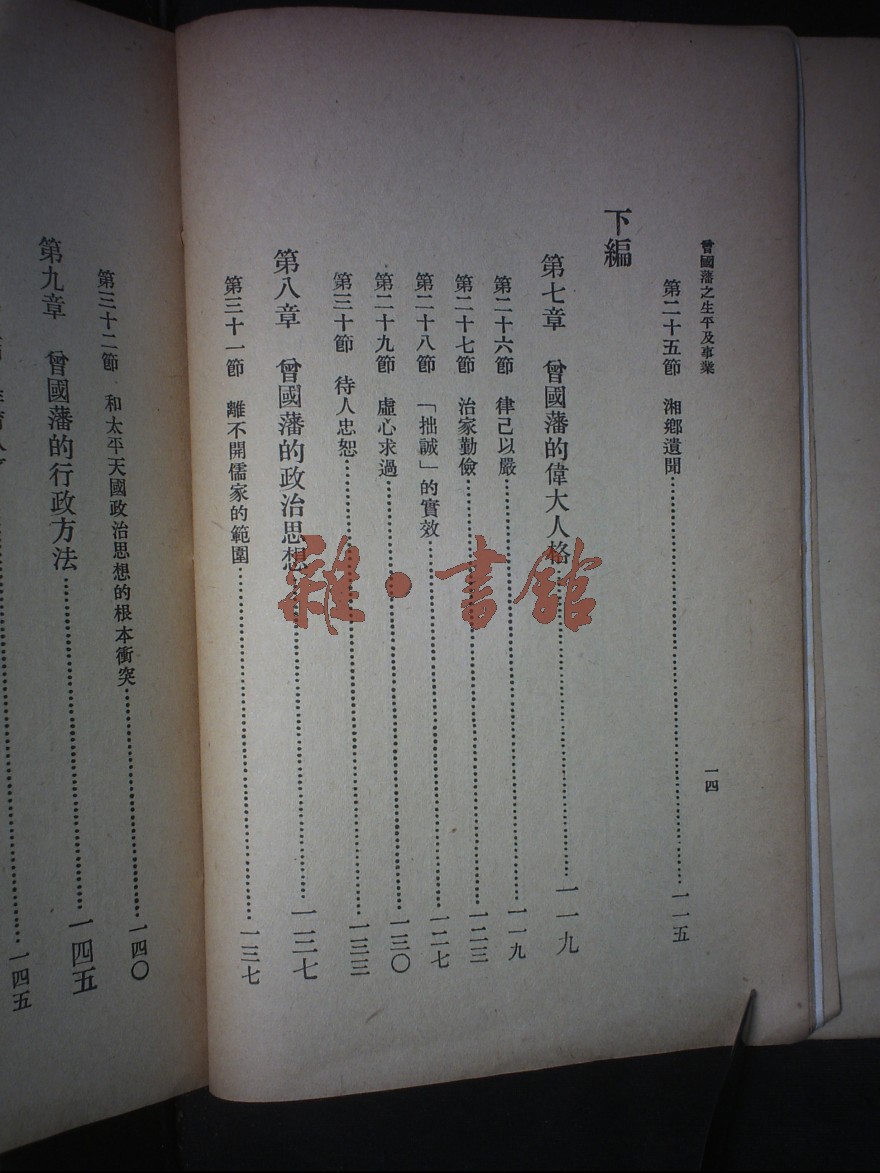 曾國藩之生平及事業
一四
第二十五節　湘鄉遺聞…………一一五
下編
第七章　曾國藩的偉大人格…………一一九
第二十六節　律己以嚴…………一一九
第二十七節　治家勤儉…………一二三
第二十八節　「拙誠」的實效…………一二七
第二十九節　虛心求過…………一三〇
第三十節　待人忠恕…………一三三
第八章　曾國藩的政治思想…………一三七
第三十一節　離不開儒家的範圍…………一三七
第三十二節　和太平天國政治思想的根本衝突…………一四〇
第九章　曾國藩的行政方法…………一四五
一四五
雜·書館